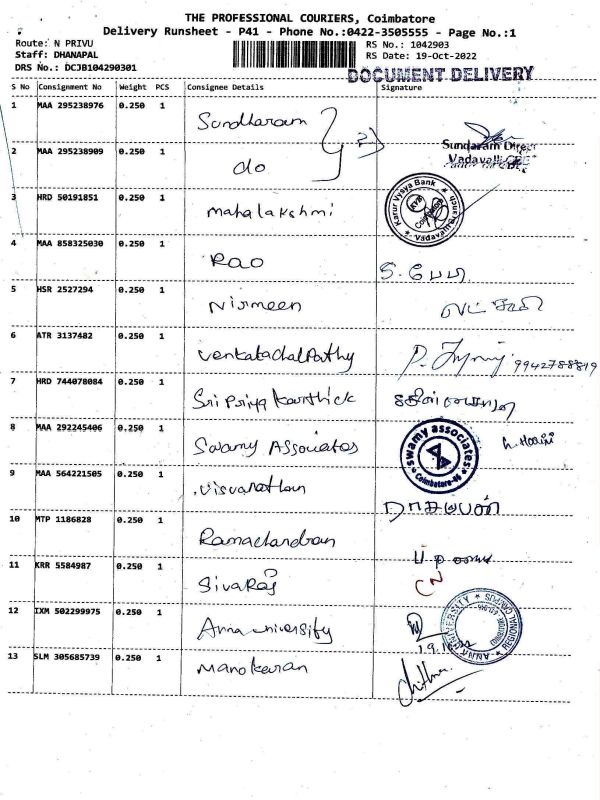 THE PROFESSIONAL COURIERS, Coimbatore
Delivery Runsheet - P41 - Phone No.:0422-3505555 - Page No.:1
Route: N PRIVU
Staff: DHANAPAL
DRS No.: DCJB104290301
RS No.: 1042903
RS Date: 19-Oct-2022
DOCUMENT DELIVERY
S No Consignment No Weight PCS Consignee Details Signature
1 MAA 295238976 0.250 1 Sundharam
Sundaram Direct
Vadavalli
2 MAA 295238909 0.250 1 do
3 HRD 50191851 0.250 1 mahalakshmi
Karur Vysya Bank
Vadavalli Branch
4 MAA 858325030 0.250 1 Rao
5 HSR 2527294 0.250 1 Nirmeen
6 ATR 3137482 0.250 1 Venkatachalpathy 9942788819
7 HRD 744078084 0.250 1 Sri Priya Karthick
8 MAA 292245406 0.250 1 Swamy Associates
swamy associates
Coimbatore-46
9 MAA 564221505 0.250 1 Visvanathan
10 MTP 1186828 0.250 1 Ramachandran
11 KRR 5584987 0.250 1 Sivaraj
CN
12 IXM 502299975 0.250 1 Anna university
ANNA UNIVERSITY REGIONAL CAMPUS
13 SLM 305685739 0.250 1 Manokaran